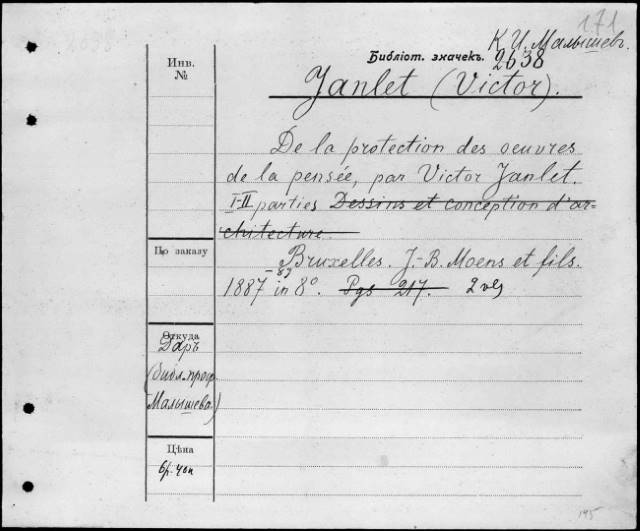 171
К. И. Малышев.
Инв.
№
Библіот. значекъ. 2638
Janlet (Victor).
De la protection des oeuvres
de la pensée, par Victor Janlet.
I-II parties Dessins et conception d'ar-
chitecture.
По заказу
Bruxelles. J.-B. Moens et fils.
1887-89 in 8°. Pgs 217. 2 vls
Откуда
Даръ
(библ. проф.
Малышева.)
Цѣна
6р. 40к
195